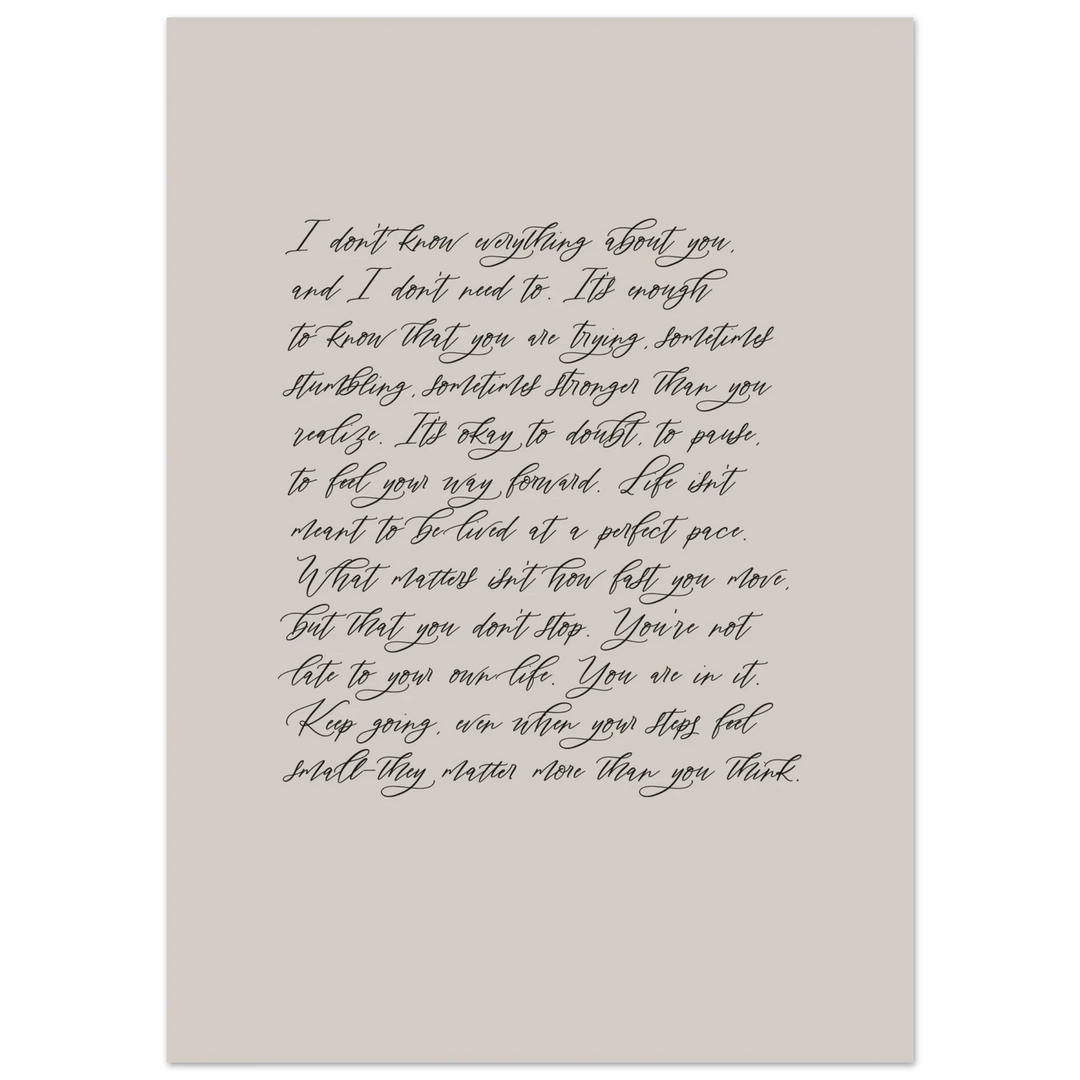 I don't know everything about you,
and I don't need to. It's enough
to know that you are trying, sometimes
stumbling, sometimes stronger than you
realize. It's okay to doubt, to pause,
to feel your way forward. Life isn't
meant to be lived at a perfect pace.
What matters isn't how fast you move,
but that you don't stop. You're not
late to your own life. You are in it.
Keep going, even when your steps feel
small—they matter more than you think.